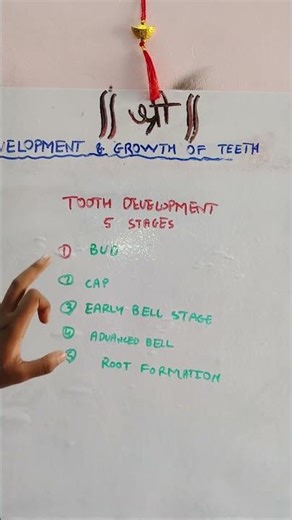 || श्री ||
VELOPMENT & GROWTH OF TEETH
TOOTH DEVELOPMENT
5 STAGES
① BUD
② CAP
③ EARLY BELL STAGE
④ ADVANCED BELL
⑤ ROOT FORMATION